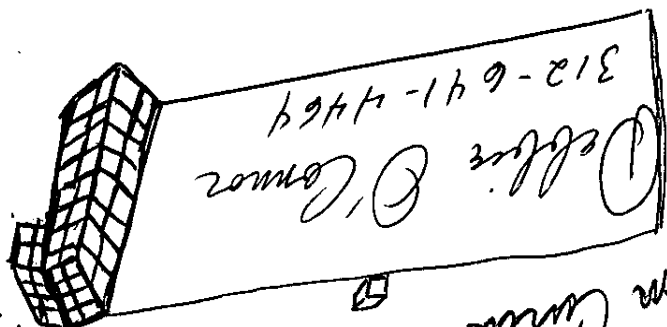 Debbie O'Connor
312-641-4464